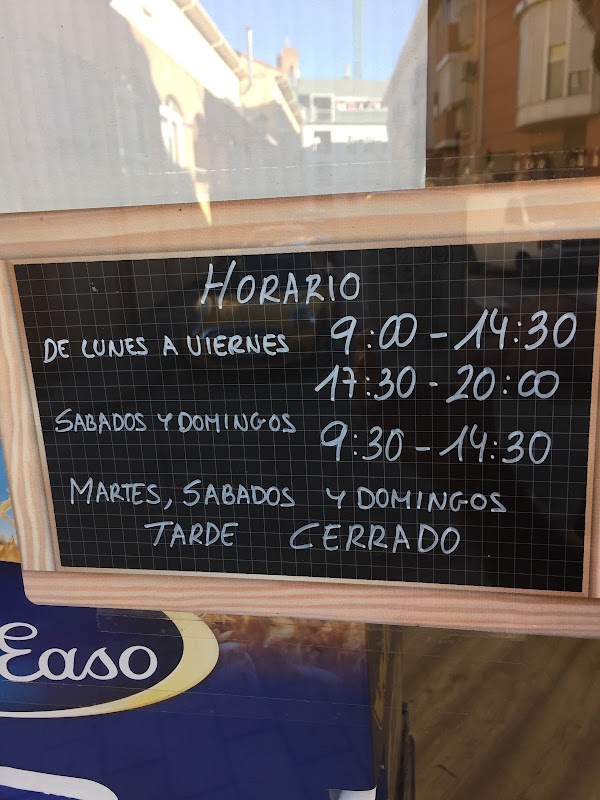 HORARIO
DE LUNES A VIERNES 9:00 - 14:30
17:30 - 20:00
SABADOS Y DOMINGOS 9:30 - 14:30
MARTES, SABADOS Y DOMINGOS
TARDE CERRADO
Easo